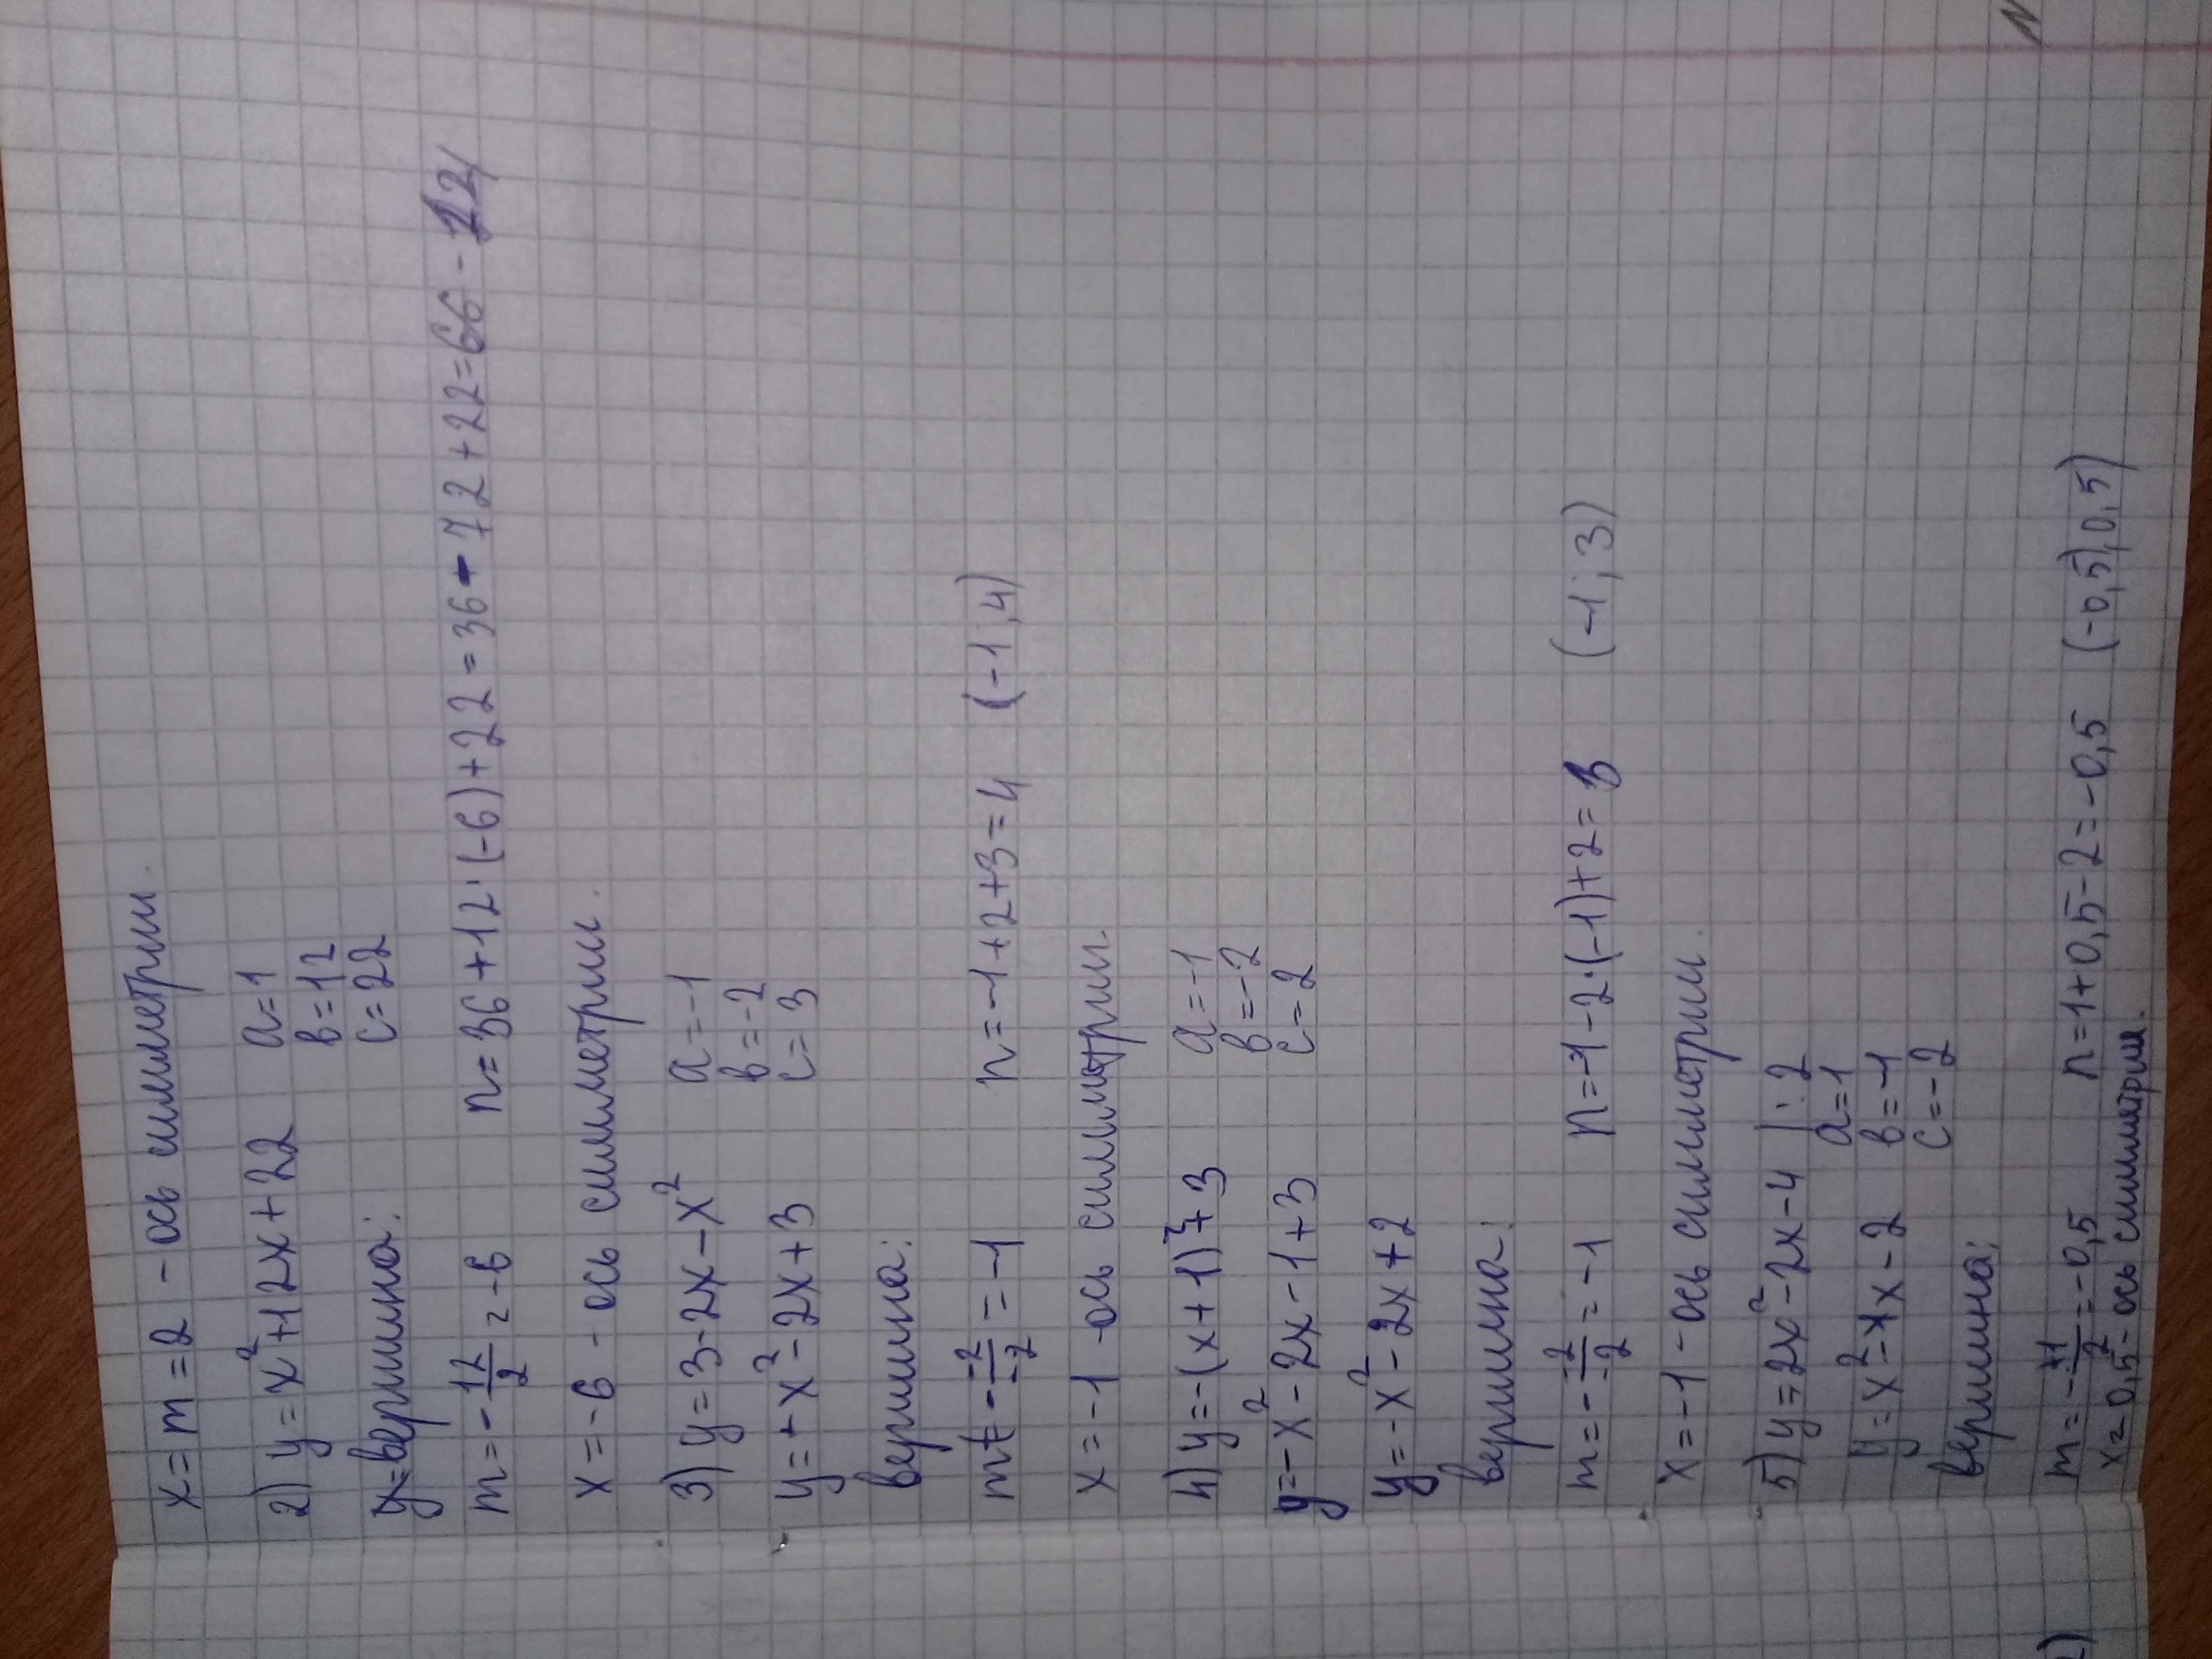 x = m = 2 - ось симметрии.
2) y = x² + 12x + 22 a = 1
b = 12
вершина: c = 22
m = -12/2 = -6 n = 36 + 12·(-6) + 22 = 36 - 72 + 22 = 66 -
x = -6 - ось симметрии.
3) y = 3 - 2x - x² a = -1
b = -2
y = - x² - 2x + 3 c = 3
вершина:
m = - -2/-2 = -1 n = -1 + 2 + 3 = 4 (-1; 4)
x = -1 - ось симметрии.
4) y = -(x + 1)² + 3 a = -1
b = -2
y = -x² - 2x - 1 + 3 c = 2
y = -x² - 2x + 2
вершина:
m = - -2/-2 = -1 n = -1 - 2·(-1) + 2 = 3 (-1; 3)
x = -1 - ось симметрии.
5) y = 2x² - 2x - 4 | : 2
a = 1
y = x² - x - 2 b = -1
c = -2
вершина:
m = - /2 = -0,5 n = 1 + 0,5 - 2 = -0,5 (-0,5; 0,5)
x = 0,5 - ось симметрии.
N
2)